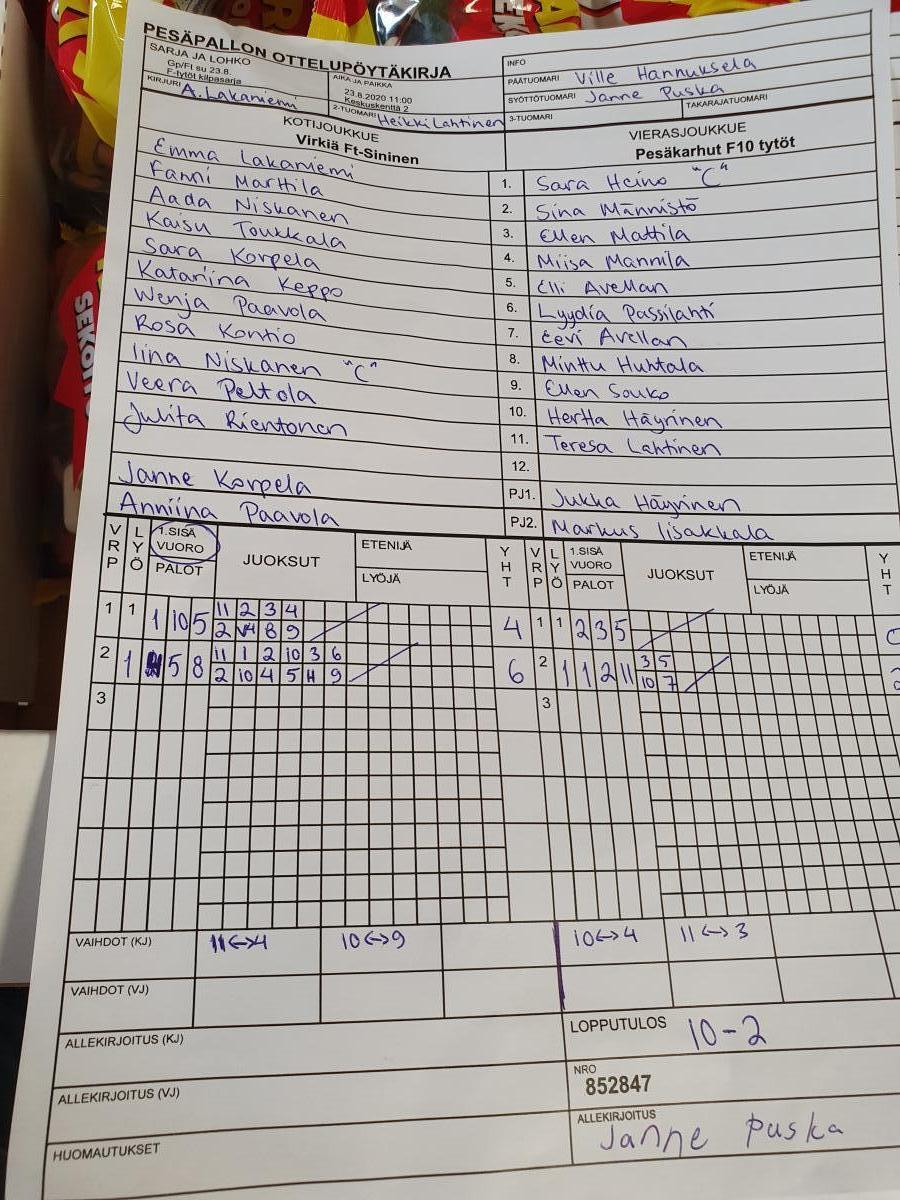 PESÄPALLON OTTELUPÖYTÄKIRJA
SARJA JA LOHKO
Gp/Ft su 23.8.
F-tytöt kilpasarja
KIRJURI A. Lakaniemi
AIKA JA PAIKKA
23.8.2020 11:00
Keskuskenttä 2
2-TUOMARI Heikki Lahtinen
INFO
PÄÄTUOMARI Ville Hannuksela
SYÖTTÖTUOMARI Janne Puska TAKARAJATUOMARI
3-TUOMARI
KOTIJOUKKUE
Virkiä Ft-Sininen
VIERASJOUKKUE
Pesäkarhut F10 tytöt
Emma Lakaniemi 1. Sara Heino "C"
Fanni Marttila 2. Sina Männistö
Aada Niskanen 3. Ellen Mattila
Kaisu Toukkala 4. Miisa Mannila
Sara Korpela 5. Elli Avellan
Katariina Keppo 6. Lyydia Passilahti
Wenja Paavola 7. Eevi Avellan
Rosa Kontio 8. Minttu Huhtala
Iina Niskanen "C" 9. Ellen Souko
Veera Peltola 10. Hertta Häyrinen
Julita Rientonen 11. Teresa Lahtinen
12.
Janne Korpela PJ1. Jukka Häyrinen
Anniina Paavola PJ2. Markus Iisakkala
VRP LYÖ 1.SISÄ VUORO PALOT JUOKSUT ETENIJÄ LYÖJÄ YHT VRP LYÖ 1.SISÄ VUORO PALOT JUOKSUT ETENIJÄ LYÖJÄ YHT
1 1 1 10 5 11 2 3 4 4 1 1 2 3 5
2 V4 8 9
2 1 5 8 11 1 2 10 3 6 6 2 1 1 2 11 3 5
2 10 4 5 H 9 10 7
3 3
VAIHDOT (KJ) 11<->4 10<->9 10<->4 11<->3
VAIHDOT (VJ)
ALLEKIRJOITUS (KJ)
LOPPUTULOS 10-2
ALLEKIRJOITUS (VJ)
NRO
852847
HUOMAUTUKSET
ALLEKIRJOITUS
Janne Puska